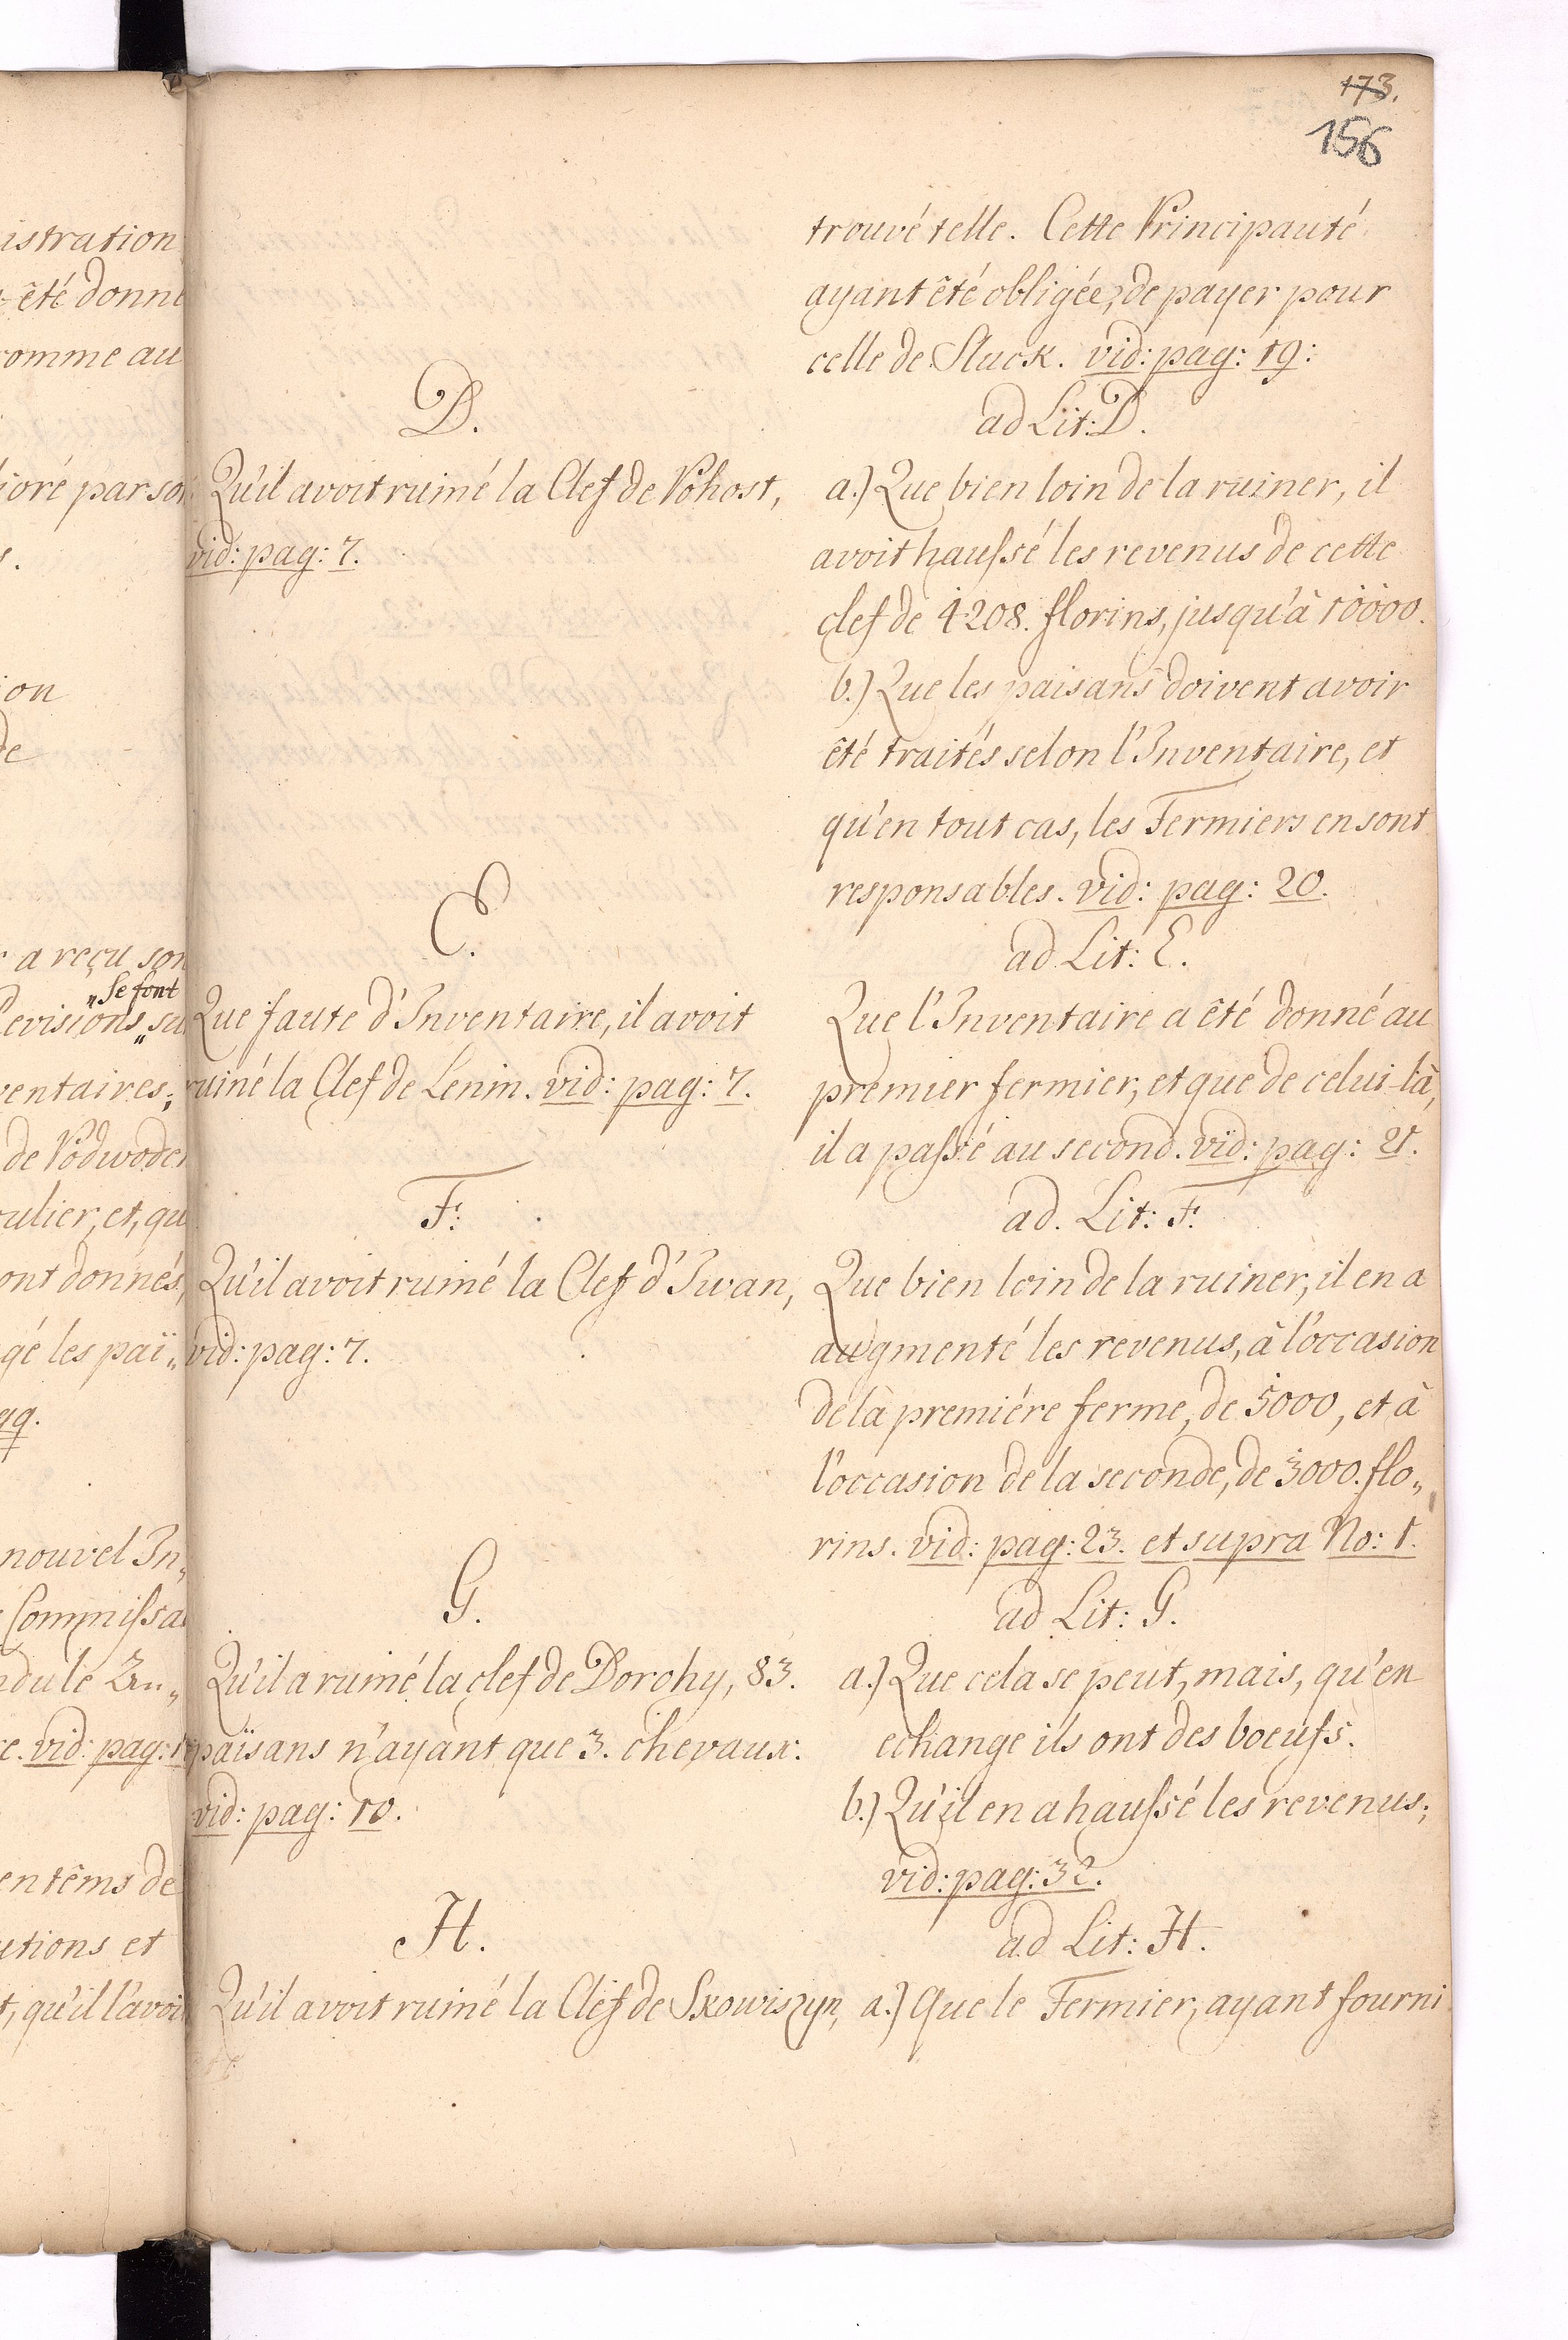 173.
156
istration
été donné
comme au
lioré par son
s.
ion
de
a reçu son
„se font
Revisions„ su
ventaires;
de Podwoden
culier, et, qu
ont donnés,
gé les paï„
ag.
nouvel In„
Commissa
ndu le In„
e. vid: pag: 1
en têms de
utions et
t, qu'il l'avoi
D.
Qu'il avoit ruiné la Clef de Pohost,
vid: pag: 7.
E.
Que faute d'Inventaire, il avoit
ruiné la Clef de Lenin. vid: pag: 7.
F.
Qu'il avoit ruiné la Clef d'Iwan,
vid: pag: 7.
G.
Qu'il a ruiné la clef de Dorohy, 83.
païsans n'ayant que 3. chevaux.
vid: pag: 10.
H.
Qu'il avoit ruiné la Clef de Skowiszyn,
trouvé telle. Cette Principauté
ayant êté obligée, de payer pour
celle de Sluck. vid: pag: 19:
ad Lit: D.
a.) Que bien loin de la ruiner, il
avoit haussé les revenus de cette
clef de 4208. florins, jusqu'à 10000.
b.) Que les paisans doivent avoir
êté traités selon l'Inventaire, et
qu'en tout cas, les Fermiers en sont
responsables. vid: pag: 20.
ad Lit: E.
Que l'Inventaire a êté donné au
premier fermier, et que de celui-là,
il a passé au second. vid: pag: 21.
ad. Lit: F.
Que bien loin de la ruiner, il en a
augmenté les revenus, à l'occasion
de là premiére ferme, de 5000, et à
l'occasion de la seconde, de 3000. flo„
rins. vid: pag: 23. et supra No: 1.
ad Lit: G.
a.) Que cela se peut, mais, qu'en
echange ils ont des boeufs.
b.) Qu'il en a haussé les revenus;
vid: pag: 32.
ad Lit: H.
a.) Que le Fermier, ayant fourni